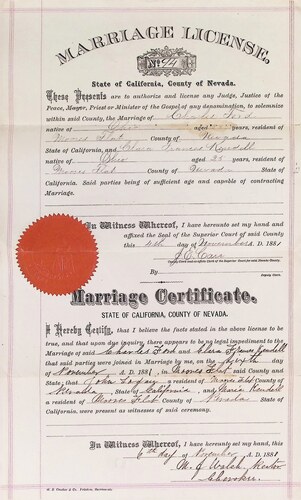 MARRIAGE LICENSE,
No. 94
State of California, County of Nevada.
These Presents are to authorize and license any Judge, Justice of the
Peace, Mayor, Priest or Minister of the Gospel of any denomination, to solemnize
within said County, the Marriage of Charles Ford
native of aged years, resident of
Moores Flat County of Nevada
State of California, and Clara Frances Kendell
native of Ohio aged 25 years, resident of
Moores Flat County of Nevada State of
California. Said parties being of sufficient age and capable of contracting
Marriage.
In Witness Whereof, I have hereunto set my hand and
affixed the Seal of the Superior Court of said County
this 4th day of November A.D. 1881
By
Deputy Clerk.
Marriage Certificate.
STATE OF CALIFORNIA, COUNTY OF NEVADA.
I Hereby Certify, that I believe the facts stated in the above license to
be true, and that upon due inquiry, there appears to be no legal impediment to the
Marriage of said Charles Ford and Clara Frances Kendell
that said parties were joined in Marriage by me, on the sixth day
of November A.D. 1881, in Moores Flat said County and
State; that John a resident of Moores Flat County of
Nevada State of California, and Maria Kendell
a resident of Moores Flat County of Nevada State of
California, were present as witnesses of said ceremony.
In Witness Whereof, I have hereunto set my hand, this
6th day of November A.D. 1881